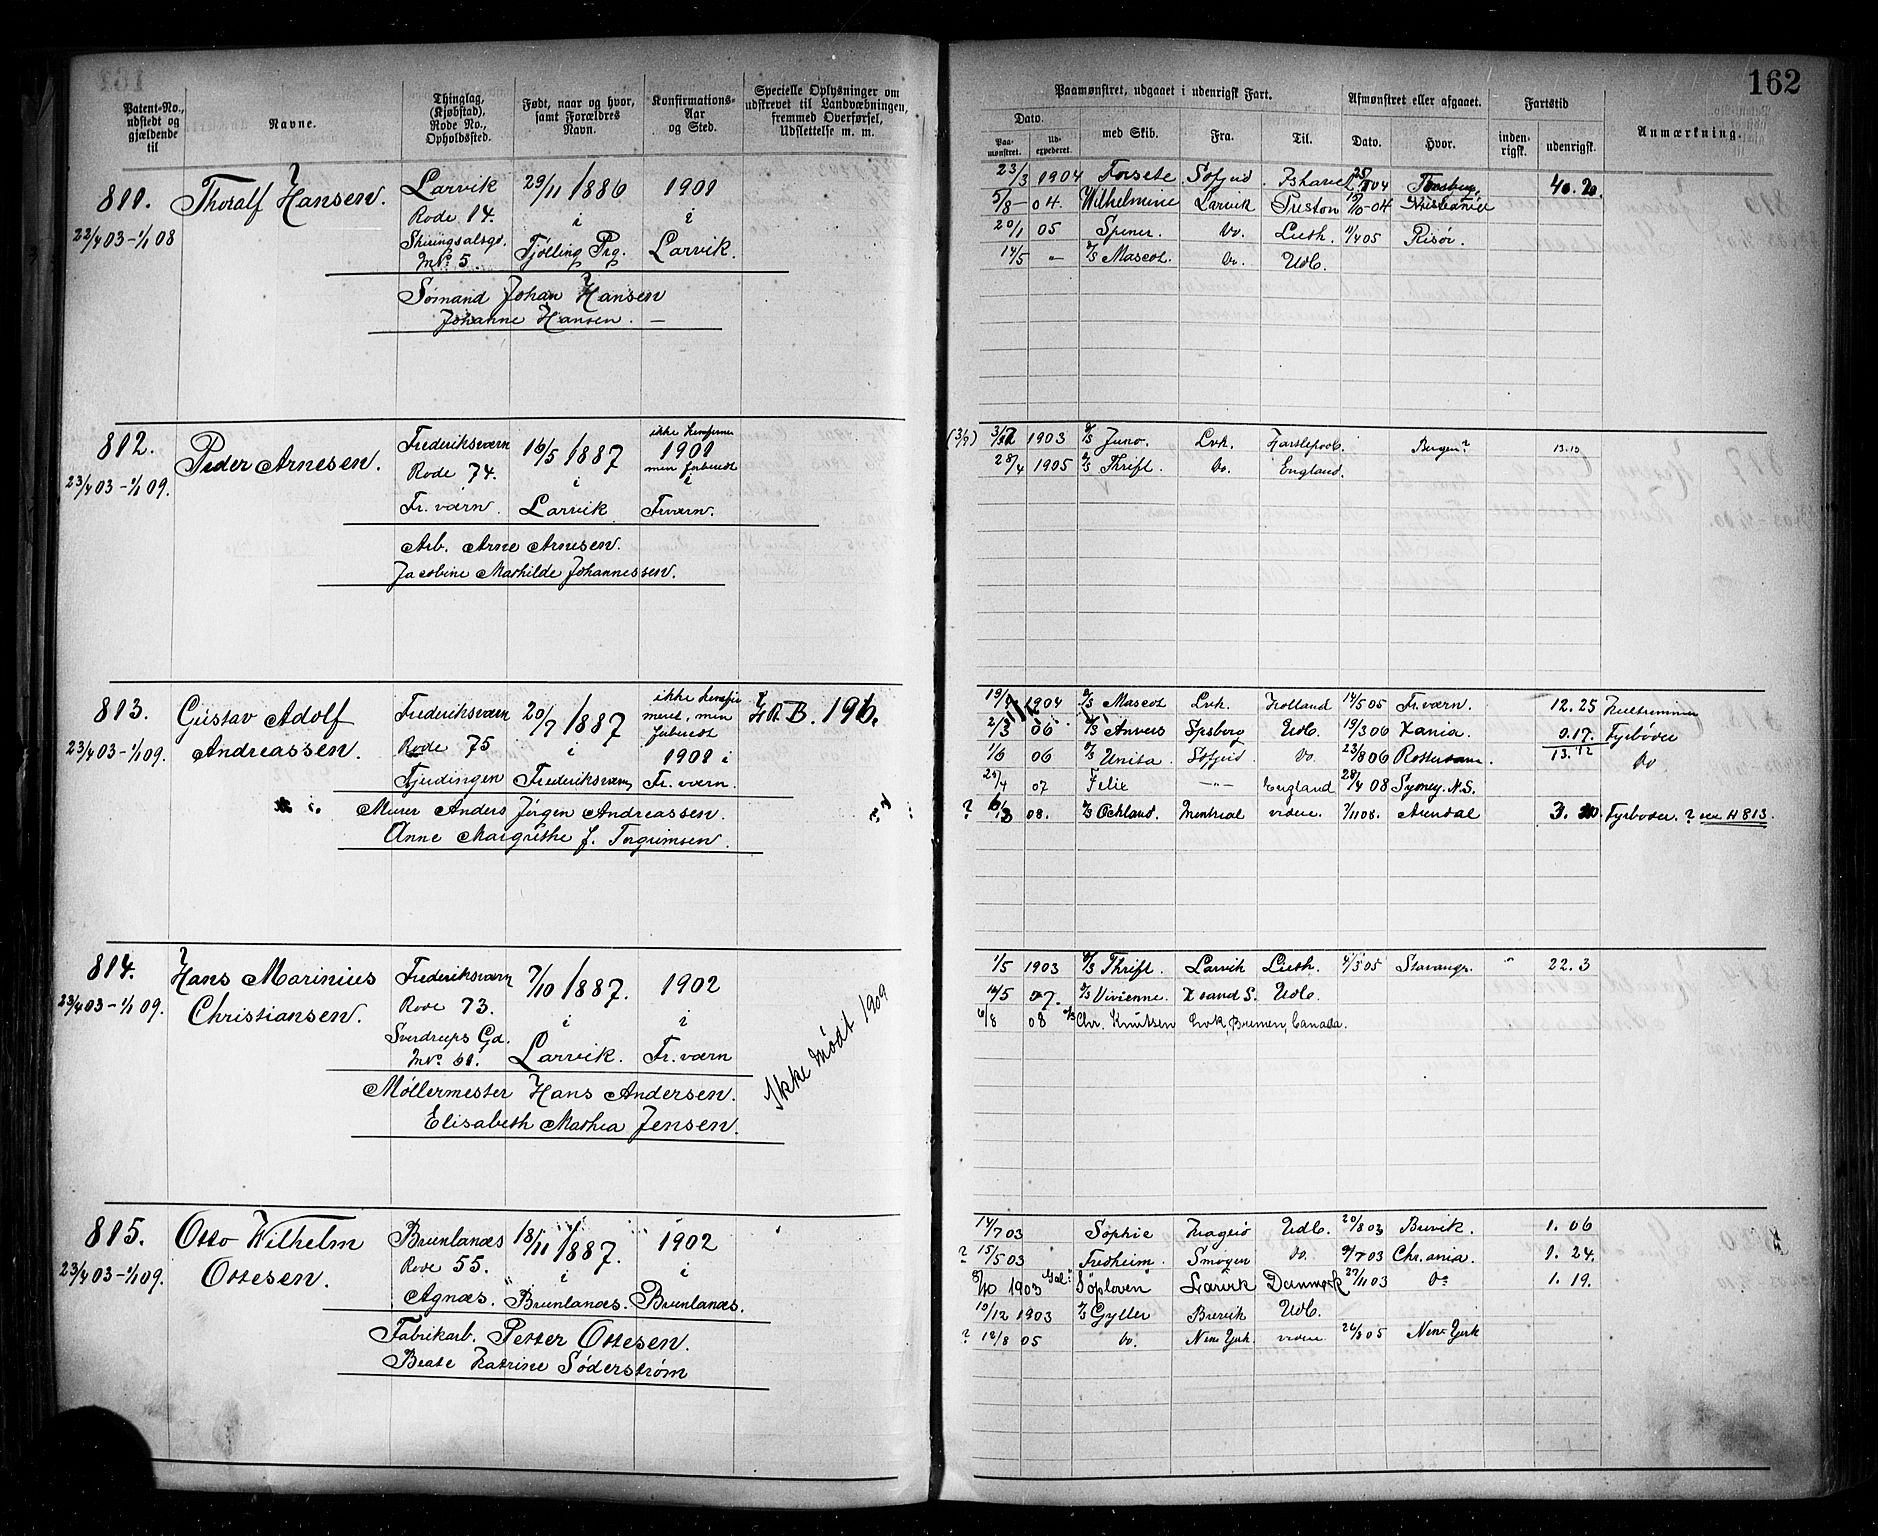 162
Patent-No., udstedt og gjældende til
Navne.
Thinglag, (Kjøbstad), Rode No., Opholdsted.
Født, naar og hvor, samt Forældres Navn.
Konfirmations-Aar og Sted.
Specielle Oplysninger om udskrevet til Landvæbningen, fremmed Overførsel, Udslettelse m. m.
Paamønstret, udgaaet i udenrigsk Fart.
Afmønstret eller afgaaet.
Fartstid
Anmærkning.
Dato.
Paa-mønstret.
Ud-expederet.
med Skib.
Fra.
Til.
Dato.
Hvor.
inden-rigsk.
udenrigsk.
811. Thoralf Hansen. Larvik 29/11 1886 1901
Rode 14. i i
22/4 03-1/1 08 Skiringsalsgd. Tjølling Prg. Larvik.
M.No 5.
Sømand Johan Hansen
Johanne Hansen. —
23/3 1904 Forsete Sofjrd 40. 20.
5/8 - 04. Wilhelmine Larvik Preston 15/10-04 Kristiania
20/1 05 Spener. Do. Lieth. 11/4 05 Risör.
14/5 - D/S Mascot Do. Udl.
812. Peder Arnesen. Frederiksværn 16/5 1887 ikke konfirme
Rode 74. i 1901 men forberedt
23/4 03-1/1 09. Fr. værn. Larvik i Fr.værn.
Arb. Arne Arnesen.
Jacobine Mathilde Johannessen.
(3/7) 1903 D/S Juno. Lvk. Hartlepool. Bergen? 13.10
28/4 1905 D/S Thrift. Do. England.
813. Gustav Adolf Andreassen. Frederiksværn 20/7 1887 ikke konfirmeret, men forberedt
Rode 75 i 1901 i
23/4 03-1/1 09. Tjudingen Frederiksværn Fr. værn.
Murer Anders Jörgen Andreassen.
Anne Margrethe f. Torgrimsen.
1904 D/S Mascot Lvk. Holland 14/5 05 Fr. værn. 12.25
2/3 06 D/S Anvers Spsborg Udl. 19/3 06 Xania. 0.17. Fyrböder
13.12
1/6 06 D/S Unita Sofjrd Do. 23/8 06 Rotterdam. Do
07 Felix —"— England 28/4 08 Sydney. N.S.
? 08. D/S Ockland. Montreal videre. 7/11 08. Arendal Fyrboder. ? se H 813.
814. Hans Marinius Christiansen. Frederiksværn 7/10 1887. 1902
Rode 73. i i
23/4 03-1/1 09. Sverdrups Gd. Larvik. Fr. værn
Møllermester Hans Andersen.
Elisabeth Mathea Jensen.
Ikke mødt 1909
1/5 1903 D/S Thrift. Larvik Lieth. 4/5 05 Stavangr. " 22.3
14/5 07. D/S Vivienne. Xsand S. Udl.
6/8 08 D/S Chr. Knutsen Lvk, Bremen, Canada.
815. Otto Wilhelm Ottesen. Brunlanæs 18/11 1887. 1902
Rode 55. i i
23/4 03-1/1 09. Agnæs. Brunlanæs. Brunlanæs.
Fabrikarb. Petter Ottesen.
Beate Katrine Söderstrøm
14/7 03 Sophie Kragerö Udl. 20/8 03 Brevik. 1. 06
? 15/5 03 Fredheim. Smögen do. 9/7 03 Chr.ania. 1. 24.
8/10 1903 Gal: "Söploven" Larvik Danmark 27/11 03 Do 1. 19.
10/12 1903 D/S Gyller Brevik Udl.
? 12/8 05 Do. New York. videre 26/8 05 New York